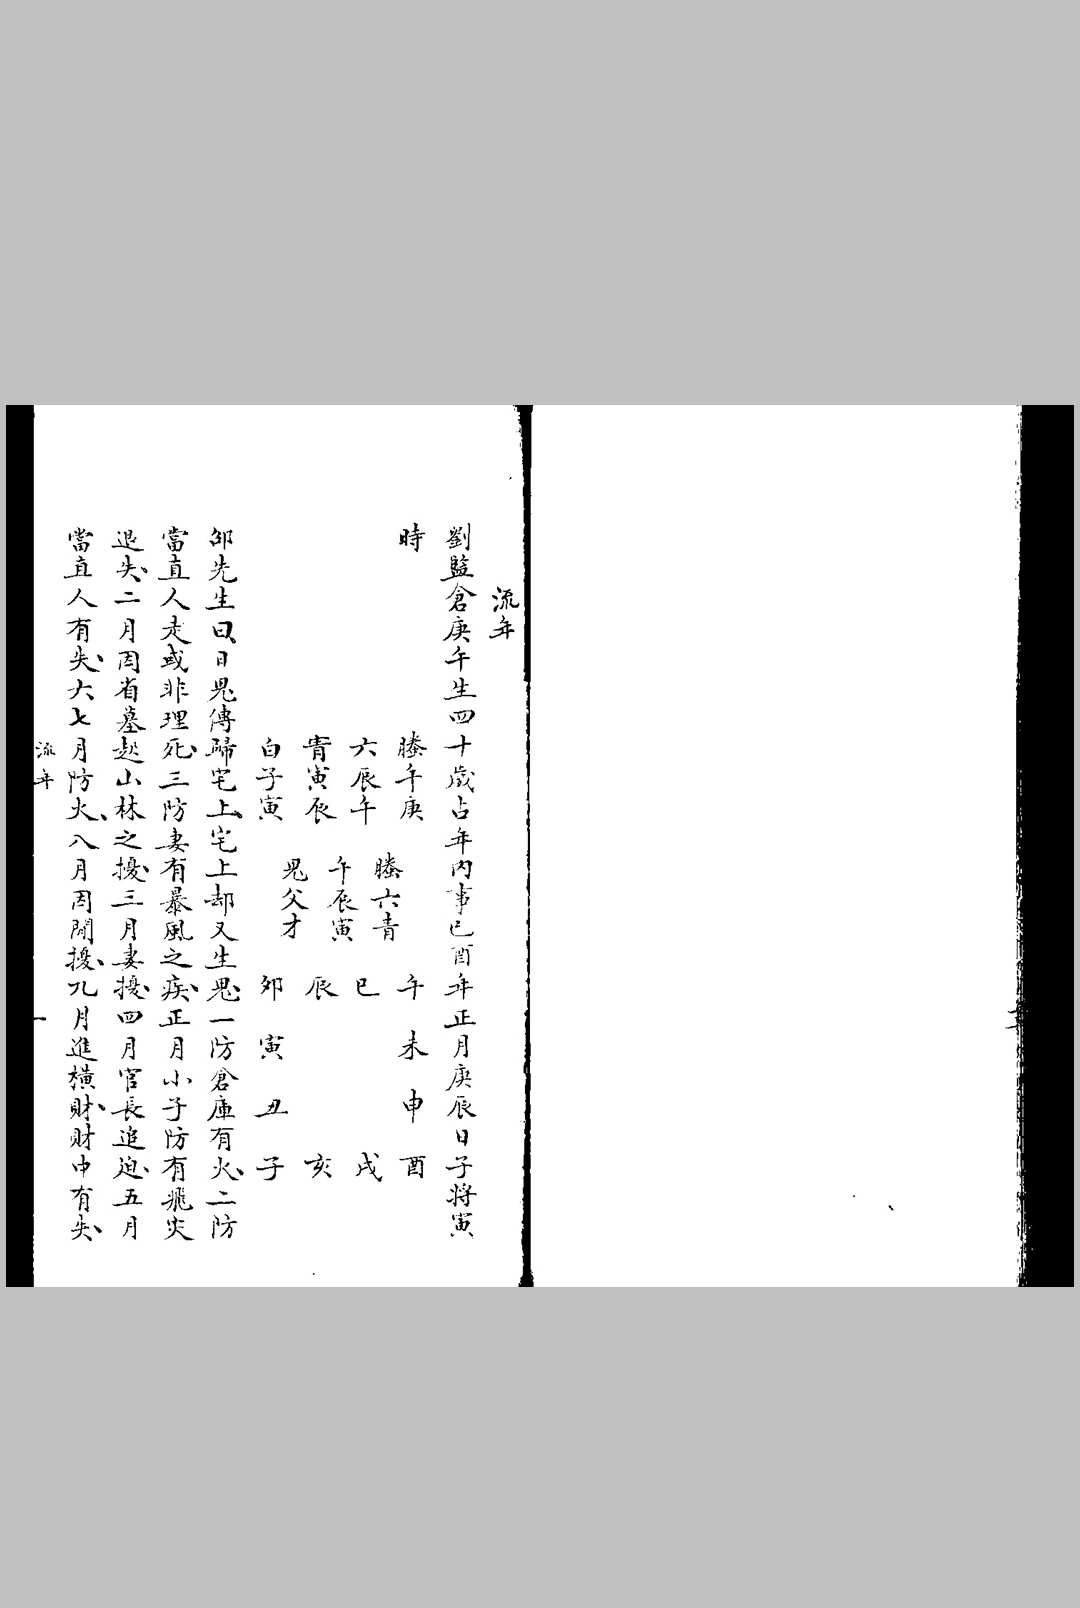 流年
劉監倉庚午生四十歲占年內事己酉年正月庚辰日子將寅
時
螣午庚
六辰午
青寅辰
白子寅
螣六青
午辰寅
鬼父才
午未申酉
巳戌
辰亥
卯寅丑子
邵先生曰日鬼傳歸宅上宅上却又生鬼一防倉庫有火二防
當直人走或非理死三防妻有暴風之疾正月小子防有飛災
退失二月因省墓起山林之擾三月妻擾四月官長追廹五月
當直人有失六七月防火八月因閙擾九月進橫財財中有失
流年
一